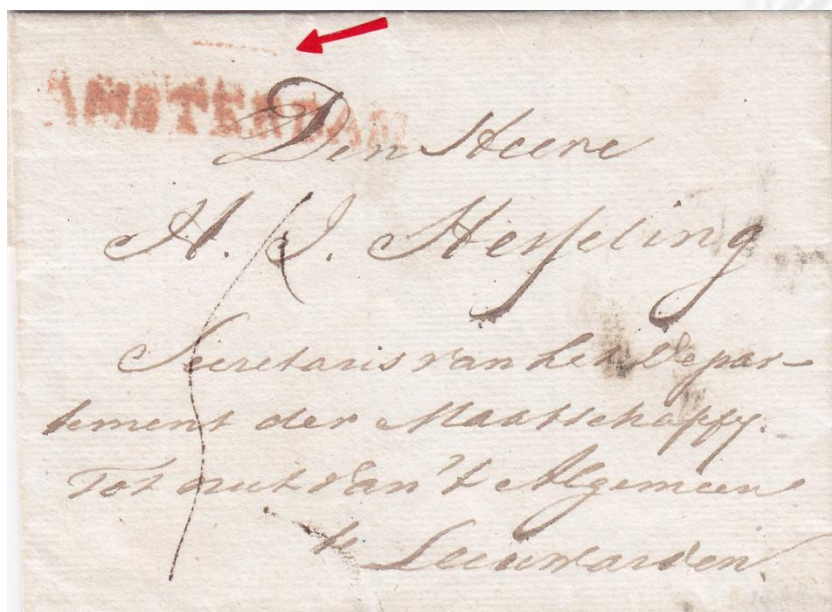 AMSTERDAM
Den Heere
H. J. Hesseling
Secretaris van het Depar-
tement der Maatschappy.
Tot nut van 't Algemeen
te Leeuwarden.